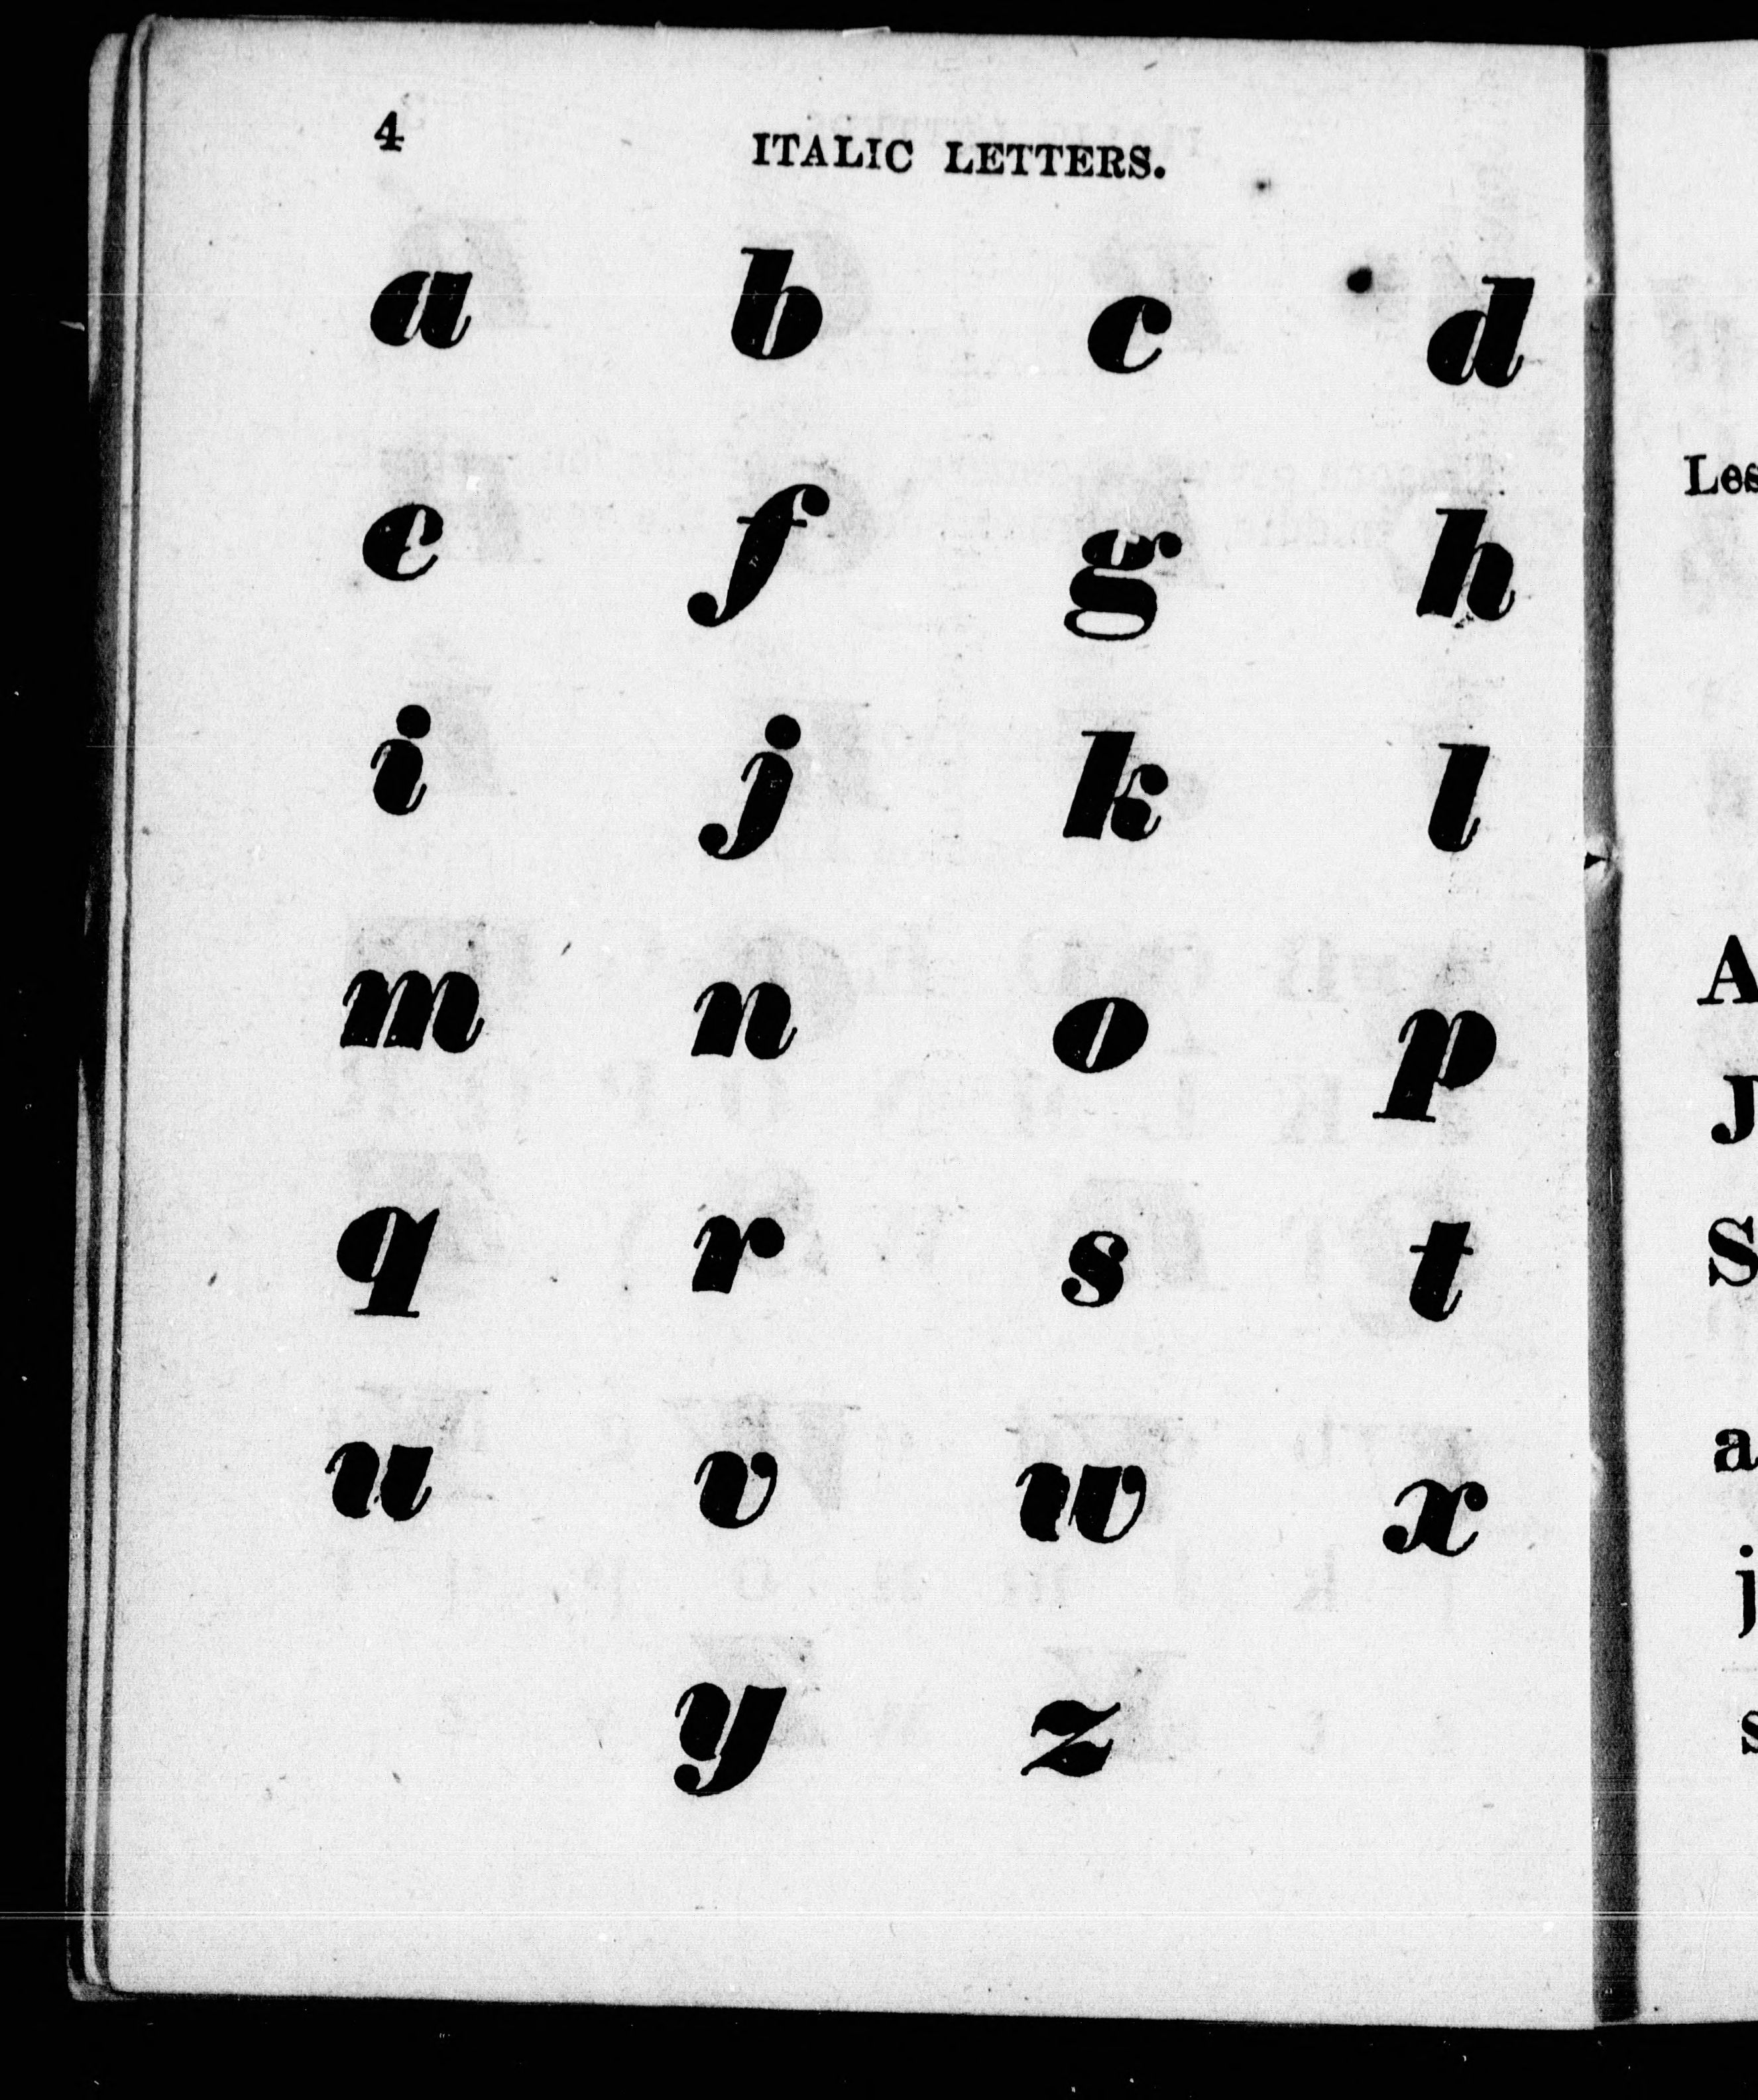 4 ITALIC LETTERS.
a b c d
e f g h
i j k l
m n o p
q r s t
u v w x
y z
A
J
S
a
j
s